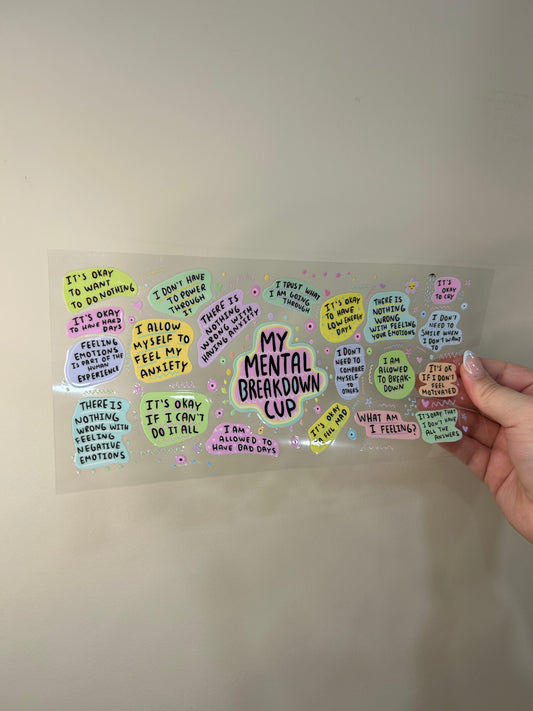 IT'S OKAY
TO WANT
TO DO NOTHING
I DON'T HAVE
TO POWER
THROUGH
IT
THERE IS
NOTHING
WRONG WITH
HAVING ANXIETY
I TRUST WHAT
I AM GOING
THROUGH
IT'S OKAY
TO HAVE
LOW ENERGY
DAYS
THERE IS
NOTHING
WRONG
WITH FEELING
YOUR EMOTIONS
IT'S
OKAY
TO CRY
IT'S OKAY
TO HAVE HARD
DAYS
I ALLOW
MYSELF TO
FEEL MY
ANXIETY
MY
MENTAL
BREAKDOWN
CUP
I DON'T
NEED TO
SMILE WHEN
I DON'T WANT
TO
FEELING
EMOTIONS
IS PART OF THE
HUMAN
EXPERIENCE
I DON'T
NEED TO
COMPARE
MYSELF
TO
OTHERS
I AM
ALLOWED TO
BREAK-
DOWN
IT'S OK
IF I DON'T
FEEL
MOTIVATED
THERE IS
NOTHING
WRONG WITH
FEELING
NEGATIVE
EMOTIONS
IT'S OKAY
IF I CAN'T
DO IT ALL
I AM
ALLOWED TO
HAVE BAD DAYS
IT'S OKAY
TO FEEL MAD
WHAT AM
I FEELING?
IT'S OKAY THAT
I DON'T HAVE
ALL THE
ANSWERS